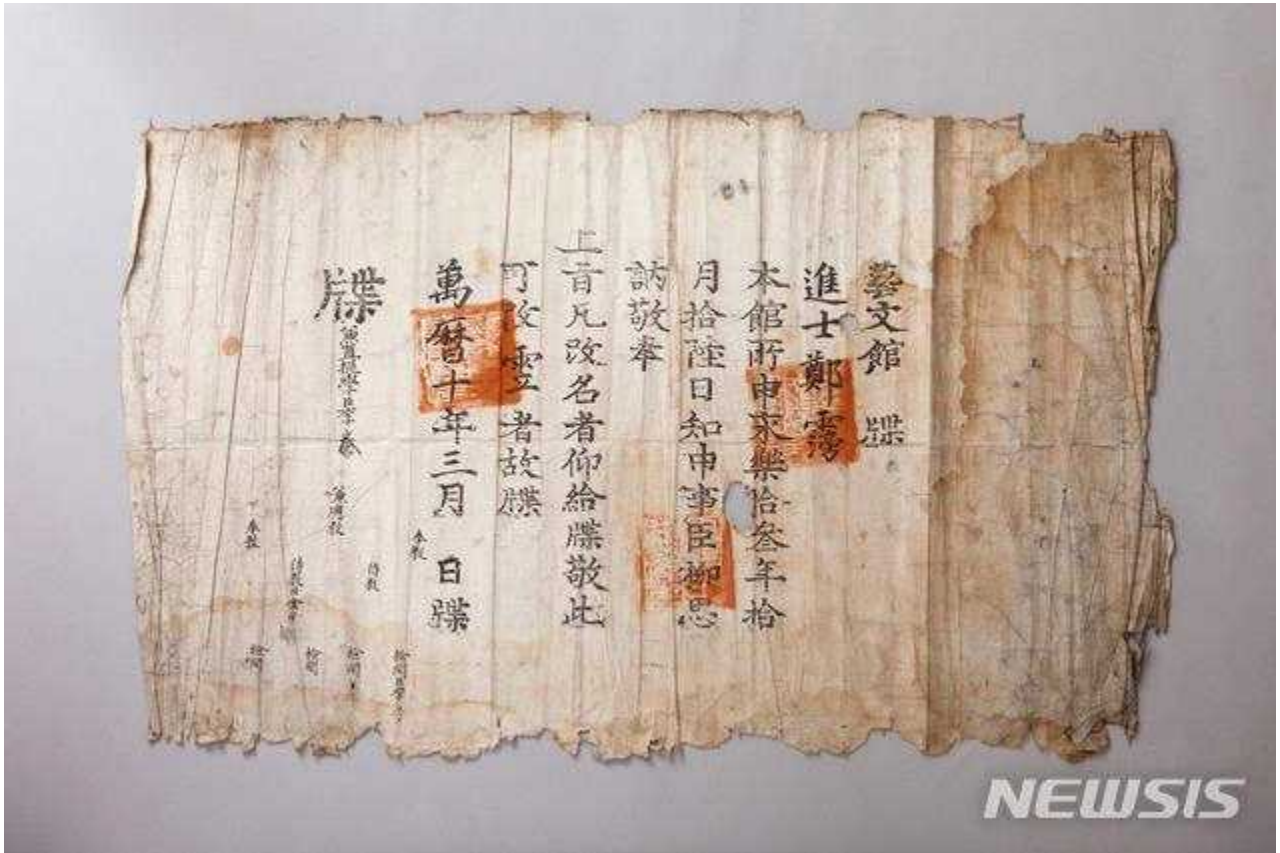 藝文館 牒
進士鄭霶
本館所申永樂拾叁年拾
月拾陸日知申事臣柳思
訥敬奉
上旨凡改名者仰給牒敬此
可改雲者故牒
萬曆十年三月 日牒
牒
奉教
待教
奉教
檢閱
檢閱
檢閱
NEWSIS